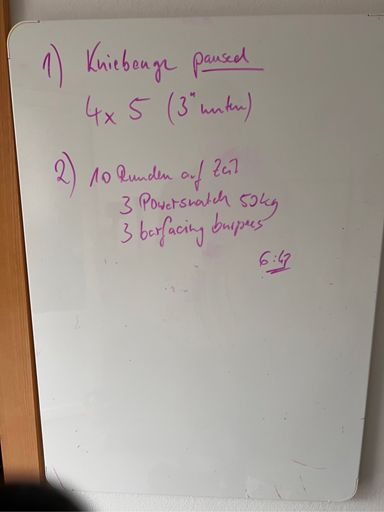 1) Kniebeuge paused
4x 5 (3" unten)
2) 10 Runden auf Zeit
3 Powersnatch 50kg
3 barfacing burpees
6:47